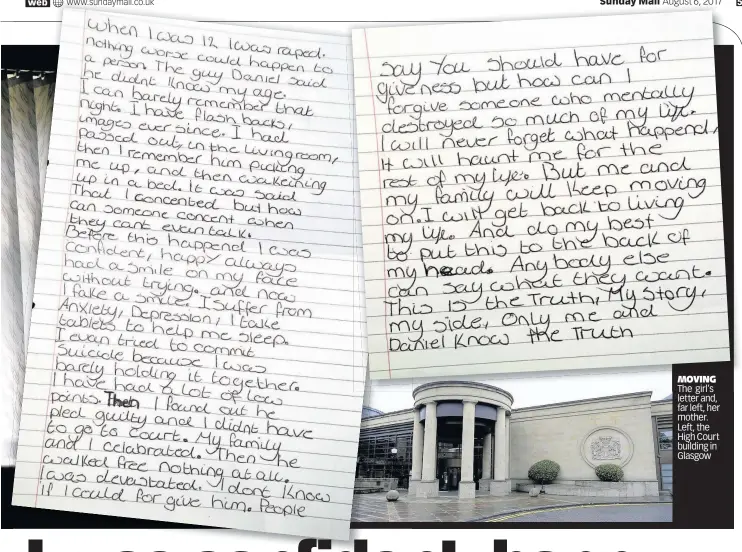 web www.sundaymail.co.uk
Sunday Mail August 6, 2017
When I was 12 I was raped.
nothing worse could happen to
a person. The guy Daniel said
he didnt know my age.
I can barely remember that
night. I have flash backs,
images ever since. I had
passed out, in the living room,
then I remember him picking
me up, and then wakeining
up in a bed. It was said
That I concented but how
can someone concent when
they cant even talk.
Before this happend I was
confident, happy always
had a smile on my face
without trying. and now
I fake a smile. I suffer from
Anxiety, Depression, I take
tablets to help me sleep.
I evan tried to commit
Suicide because I was
barely holding it together.
I have had a lot of low
points. Then I found out he
pled guilty and I didnt have
to go to court. My family
and I celabrated. Then he
walked free nothing at all.
I was devastated. I dont know
if I could for give him. People
say You should have for
giveness but how can I
forgive someone who mentally
destroyed so much of my life.
I will never forget what happend,
It will haunt me for the
rest of my life. But me and
my family will keep moving
on. I will get back to living
my life. And do my best
to put this to the back of
my head. Any body else
can say what they want.
This is the Truth, My Story,
my side, only me and
Daniel know the Truth
MOVING
The girl's
letter and,
far left, her
mother.
Left, the
High Court
building in
Glasgow